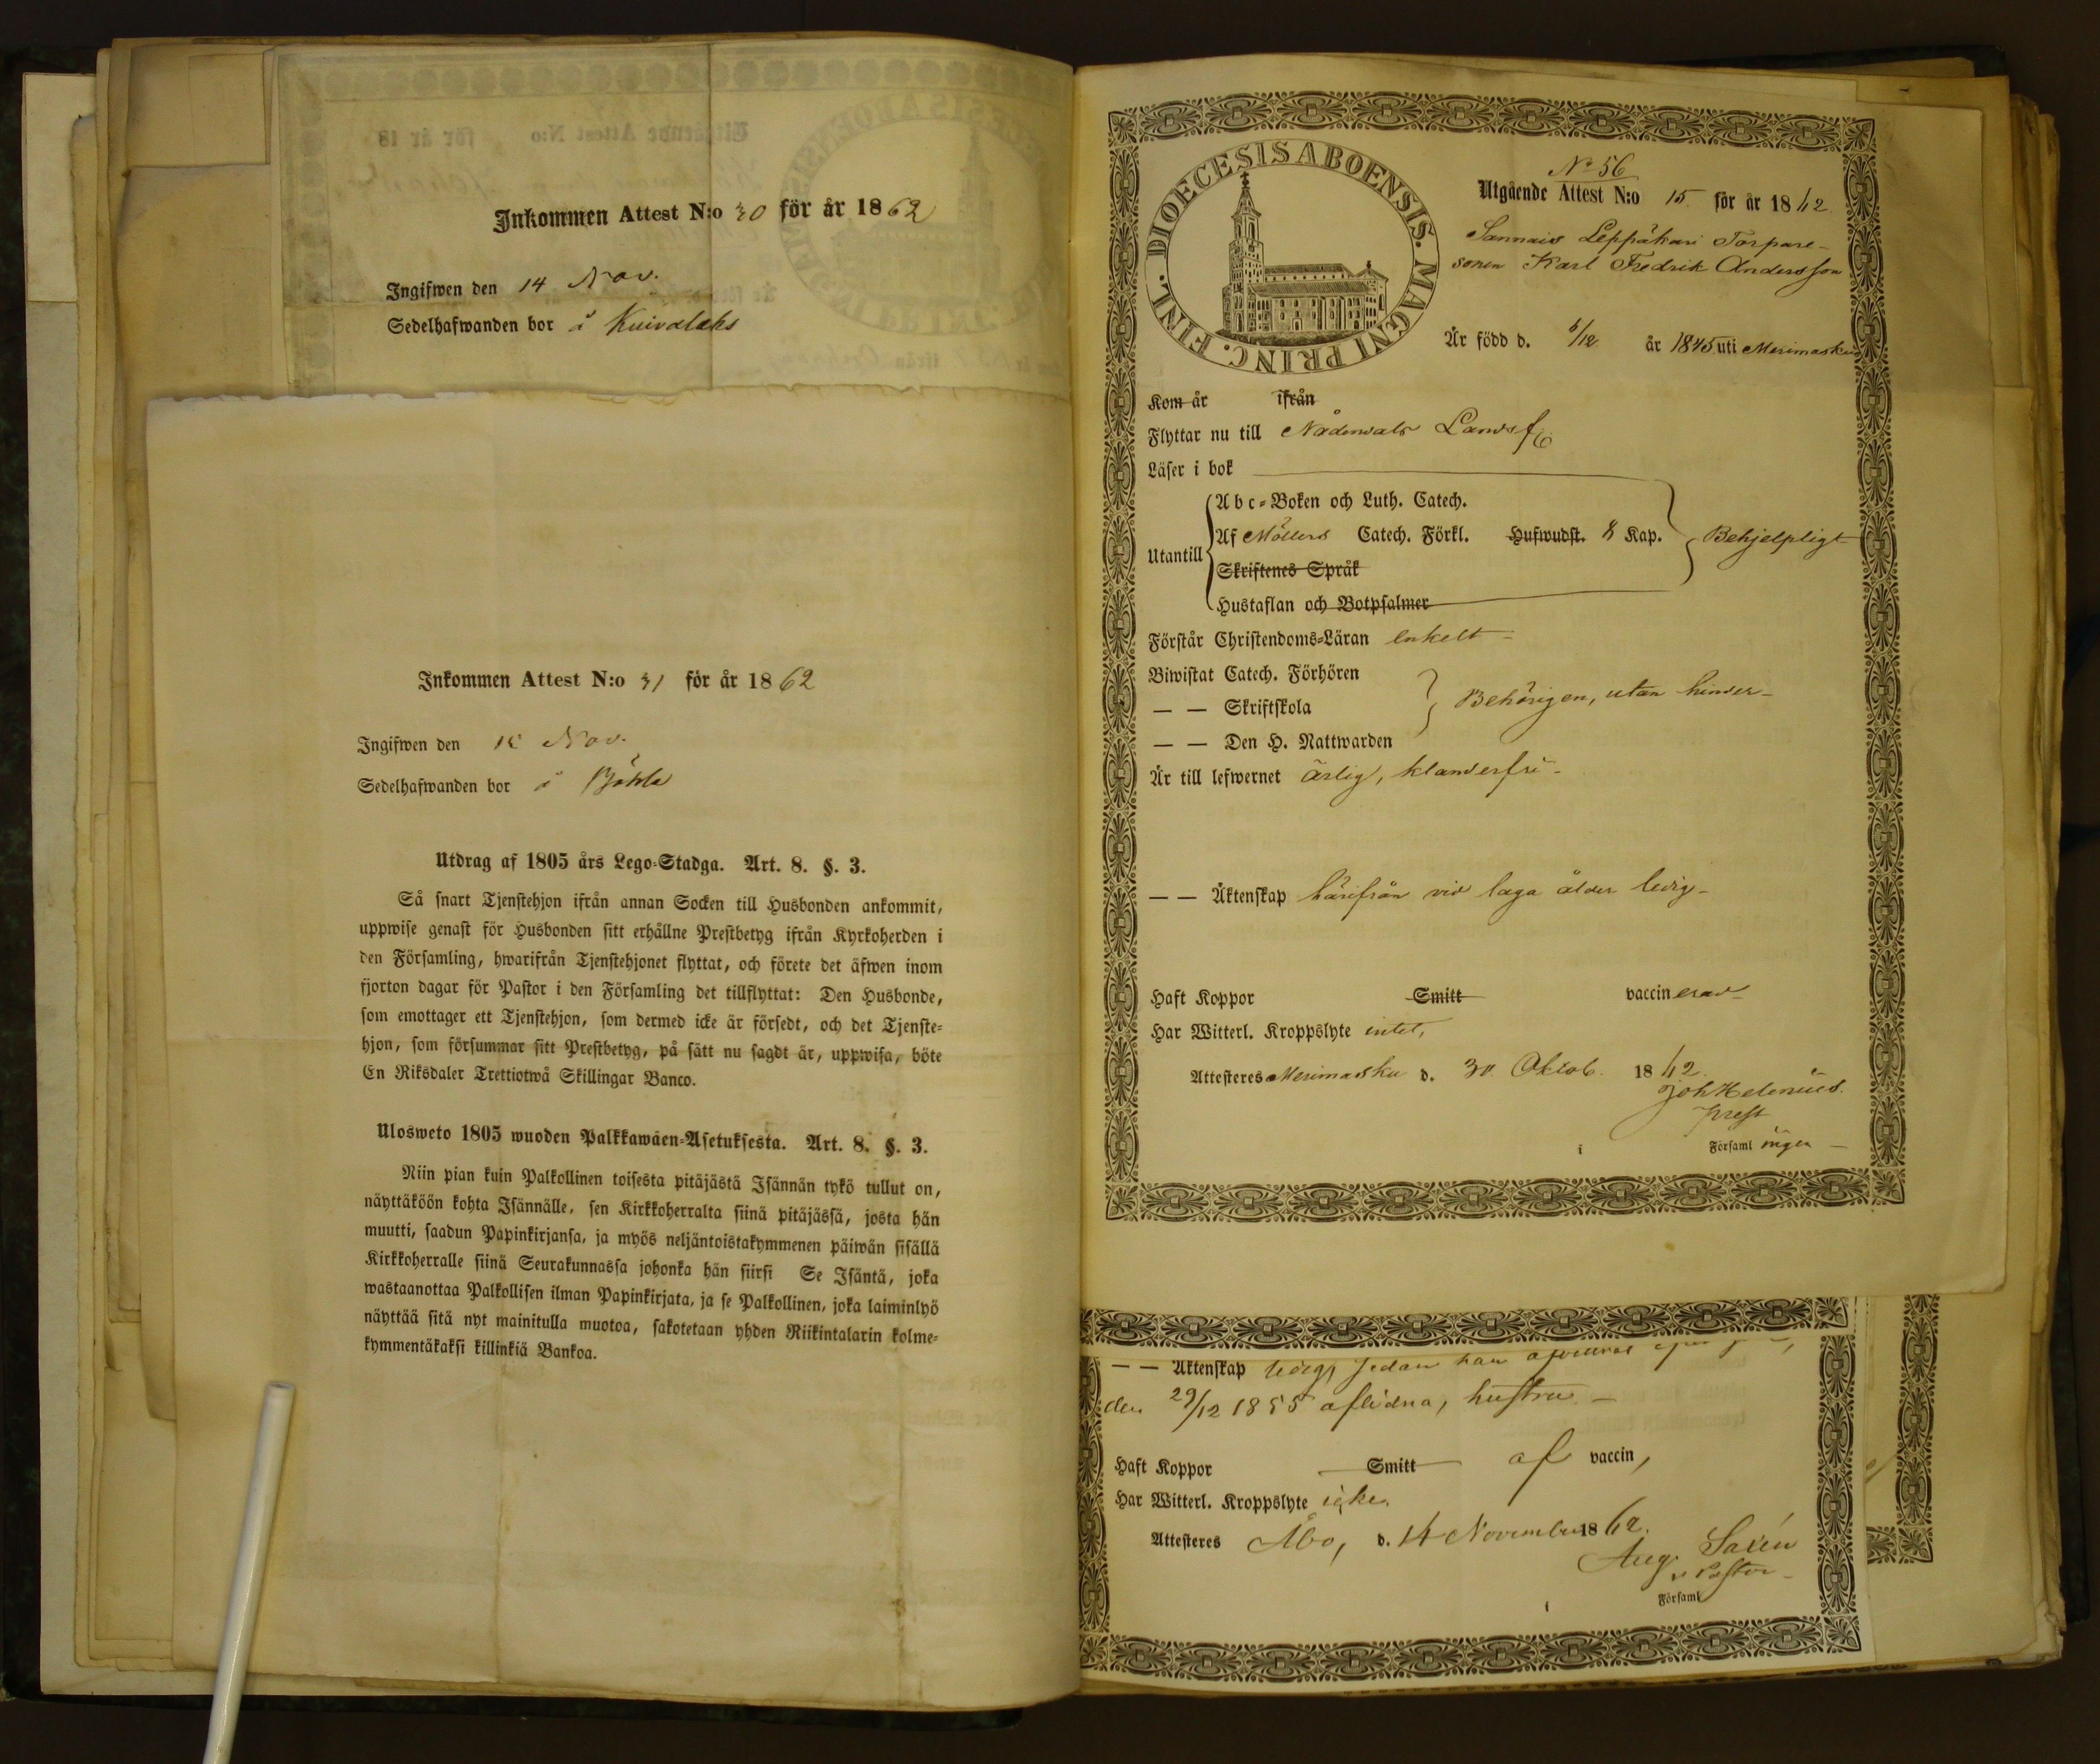 Inkommen Attest N:o 30 för år 1862
Ingifwen den 14 Nov.
Sedelhafwanden bor å Kuivalaks
Inkommen Attest N:o 31 för år 1862
Ingifwen den 15 Nov.
Sedelhafwanden bor å Böhle
Utdrag af 1805 års Lego-Stadga. Art. 8. §. 3.
Så snart Tjenstehjon ifrån annan Socken till Husbonden ankommit,
uppwise genast för Husbonden sitt erhållne Prestbetyg ifrån Kyrkoherden i
den Församling, hwarifrån Tjenstehjonet flyttat, och förete det äfwen inom
fjorton dagar för Pastor i den Församling det tillflyttat: Den Husbonde,
som emottager ett Tjenstehjon, som dermed icke är försedt, och det Tjenste-
hjon, som försummar sitt Prestbetyg, på sätt nu sagdt är, uppwisa, böte
En Riksdaler Trettiotwå Skillingar Banco.
Ulosweto 1805 wuoden Palkkawäen-Asetuksesta. Art. 8. §. 3.
Niin pian kuin Palkollinen toisesta pitäjästä Isännän tykö tullut on,
näyttäköön kohta Isännälle, sen Kirkkoherralta siinä pitäjässä, josta hän
muutti, saadun Papinkirjansa, ja myös neljäntoistakymmenen päiwän sisällä
Kirkkoherralle siinä Seurakunnassa johonka hän siirsi Se Isäntä, joka
wastaanottaa Palkollisen ilman Papinkirjata, ja se Palkollinen, joka laiminlyö
näyttää sitä nyt mainitulla muotoa, sakotetaan yhden Riikintalarin kolme-
kymmentäkaksi killinkiä Bankoa.
DIOECESIS ABOENSIS. MAGNI PRINC. FINL.
No 56
Utgående Attest N:o 15 för år 1862
Sannais Leppäkari Torpare-
sonen Karl Fredrik Andersson
Är född d. 5/12 år 1845 uti Merimasku
Kom år ifrån
Flyttar nu till Nådendals Landsf
Läser i bok
Utantill
Abc-Boken och Luth. Catech.
Af Möllers Catech. Förkl. Hufwudst. 8 Kap. Behjelpligt
Skriftenes Språk
Hustaflan och Botpsalmer
Förstår Christendoms-Läran enkelt
Biwistat Catech. Förhören
— — Skriftskola Behörigen, utan hinder
— — Den H. Nattwarden
Är till lefwernet ärlig, klanderfri
— — Äktenskap härifrån vid laga ålder ledig
Haft Koppor Smitt vaccinerad
Har Witterl. Kroppslyte intet,
Attesteres Merimasku d. 30 Oktob. 1862.
Joh Helenius.
Prest
i Församlingen
— — Äktenskap ledig, sedan han
den 29/12 1855 aflidna, hustru
Haft Koppor Smitt af vaccin,
Har Witterl. Kroppslyte icke.
Attesteres Åbo, d. 14 November 1862.
Aug. Saxén
v Pastor
i Församl